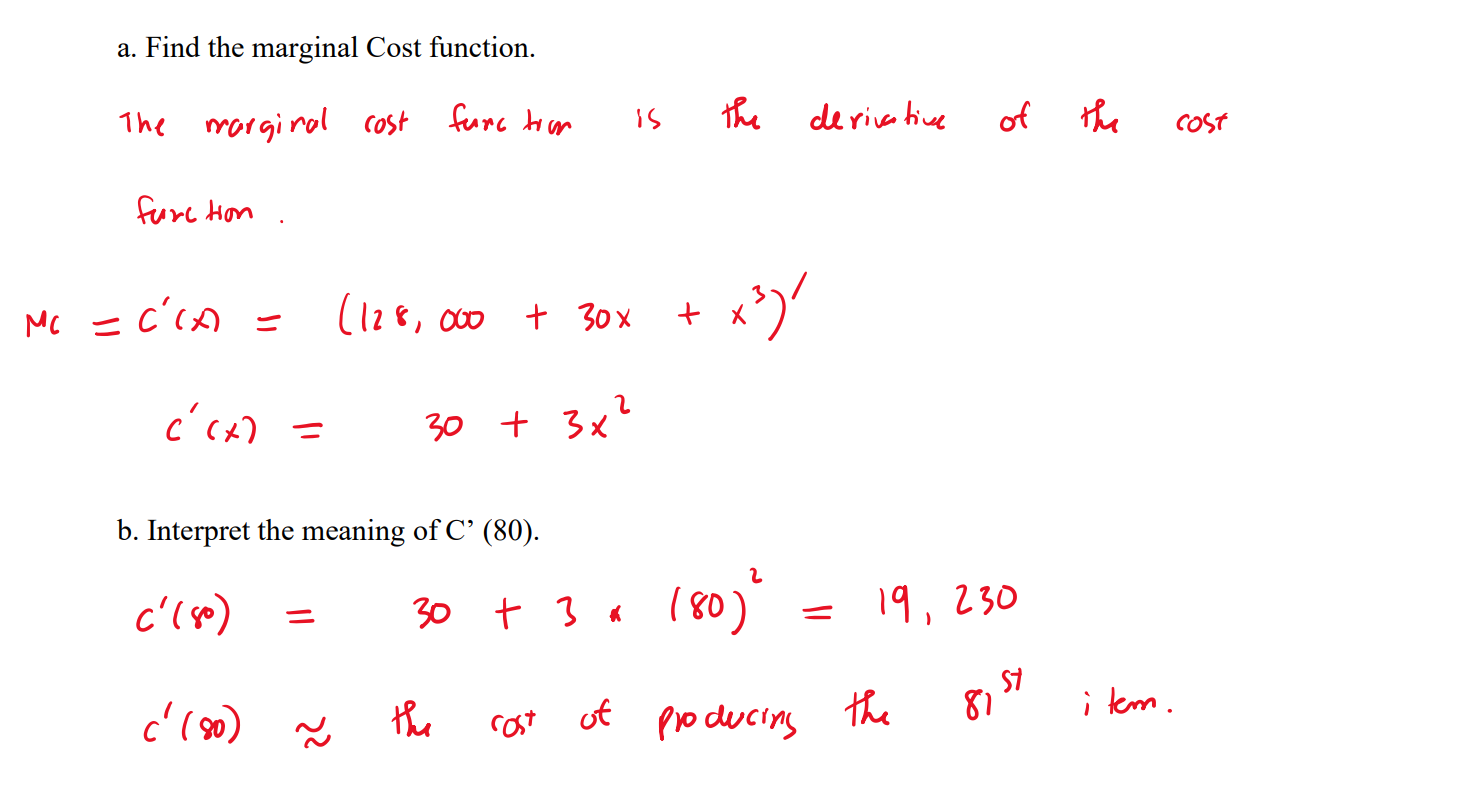 a. Find the marginal Cost function.
The marginal cost function is the derivative of the cost
function .
MC = C'(x) = (128,000 + 30x + x³)'
C'(x) = 30 + 3x²
b. Interpret the meaning of C’ (80).
C'(80) = 30 + 3 * (80)² = 19,230
C'(80) ≈ the cost of producing the 81ˢᵗ item.